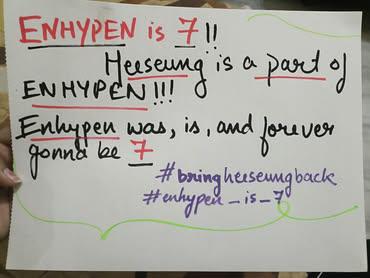 ENHYPEN is 7!!
Heeseung is a part of
ENHYPEN!!!
Enhypen was, is, and forever
gonna be 7
#bringheeseungback
#enhypen_is_7